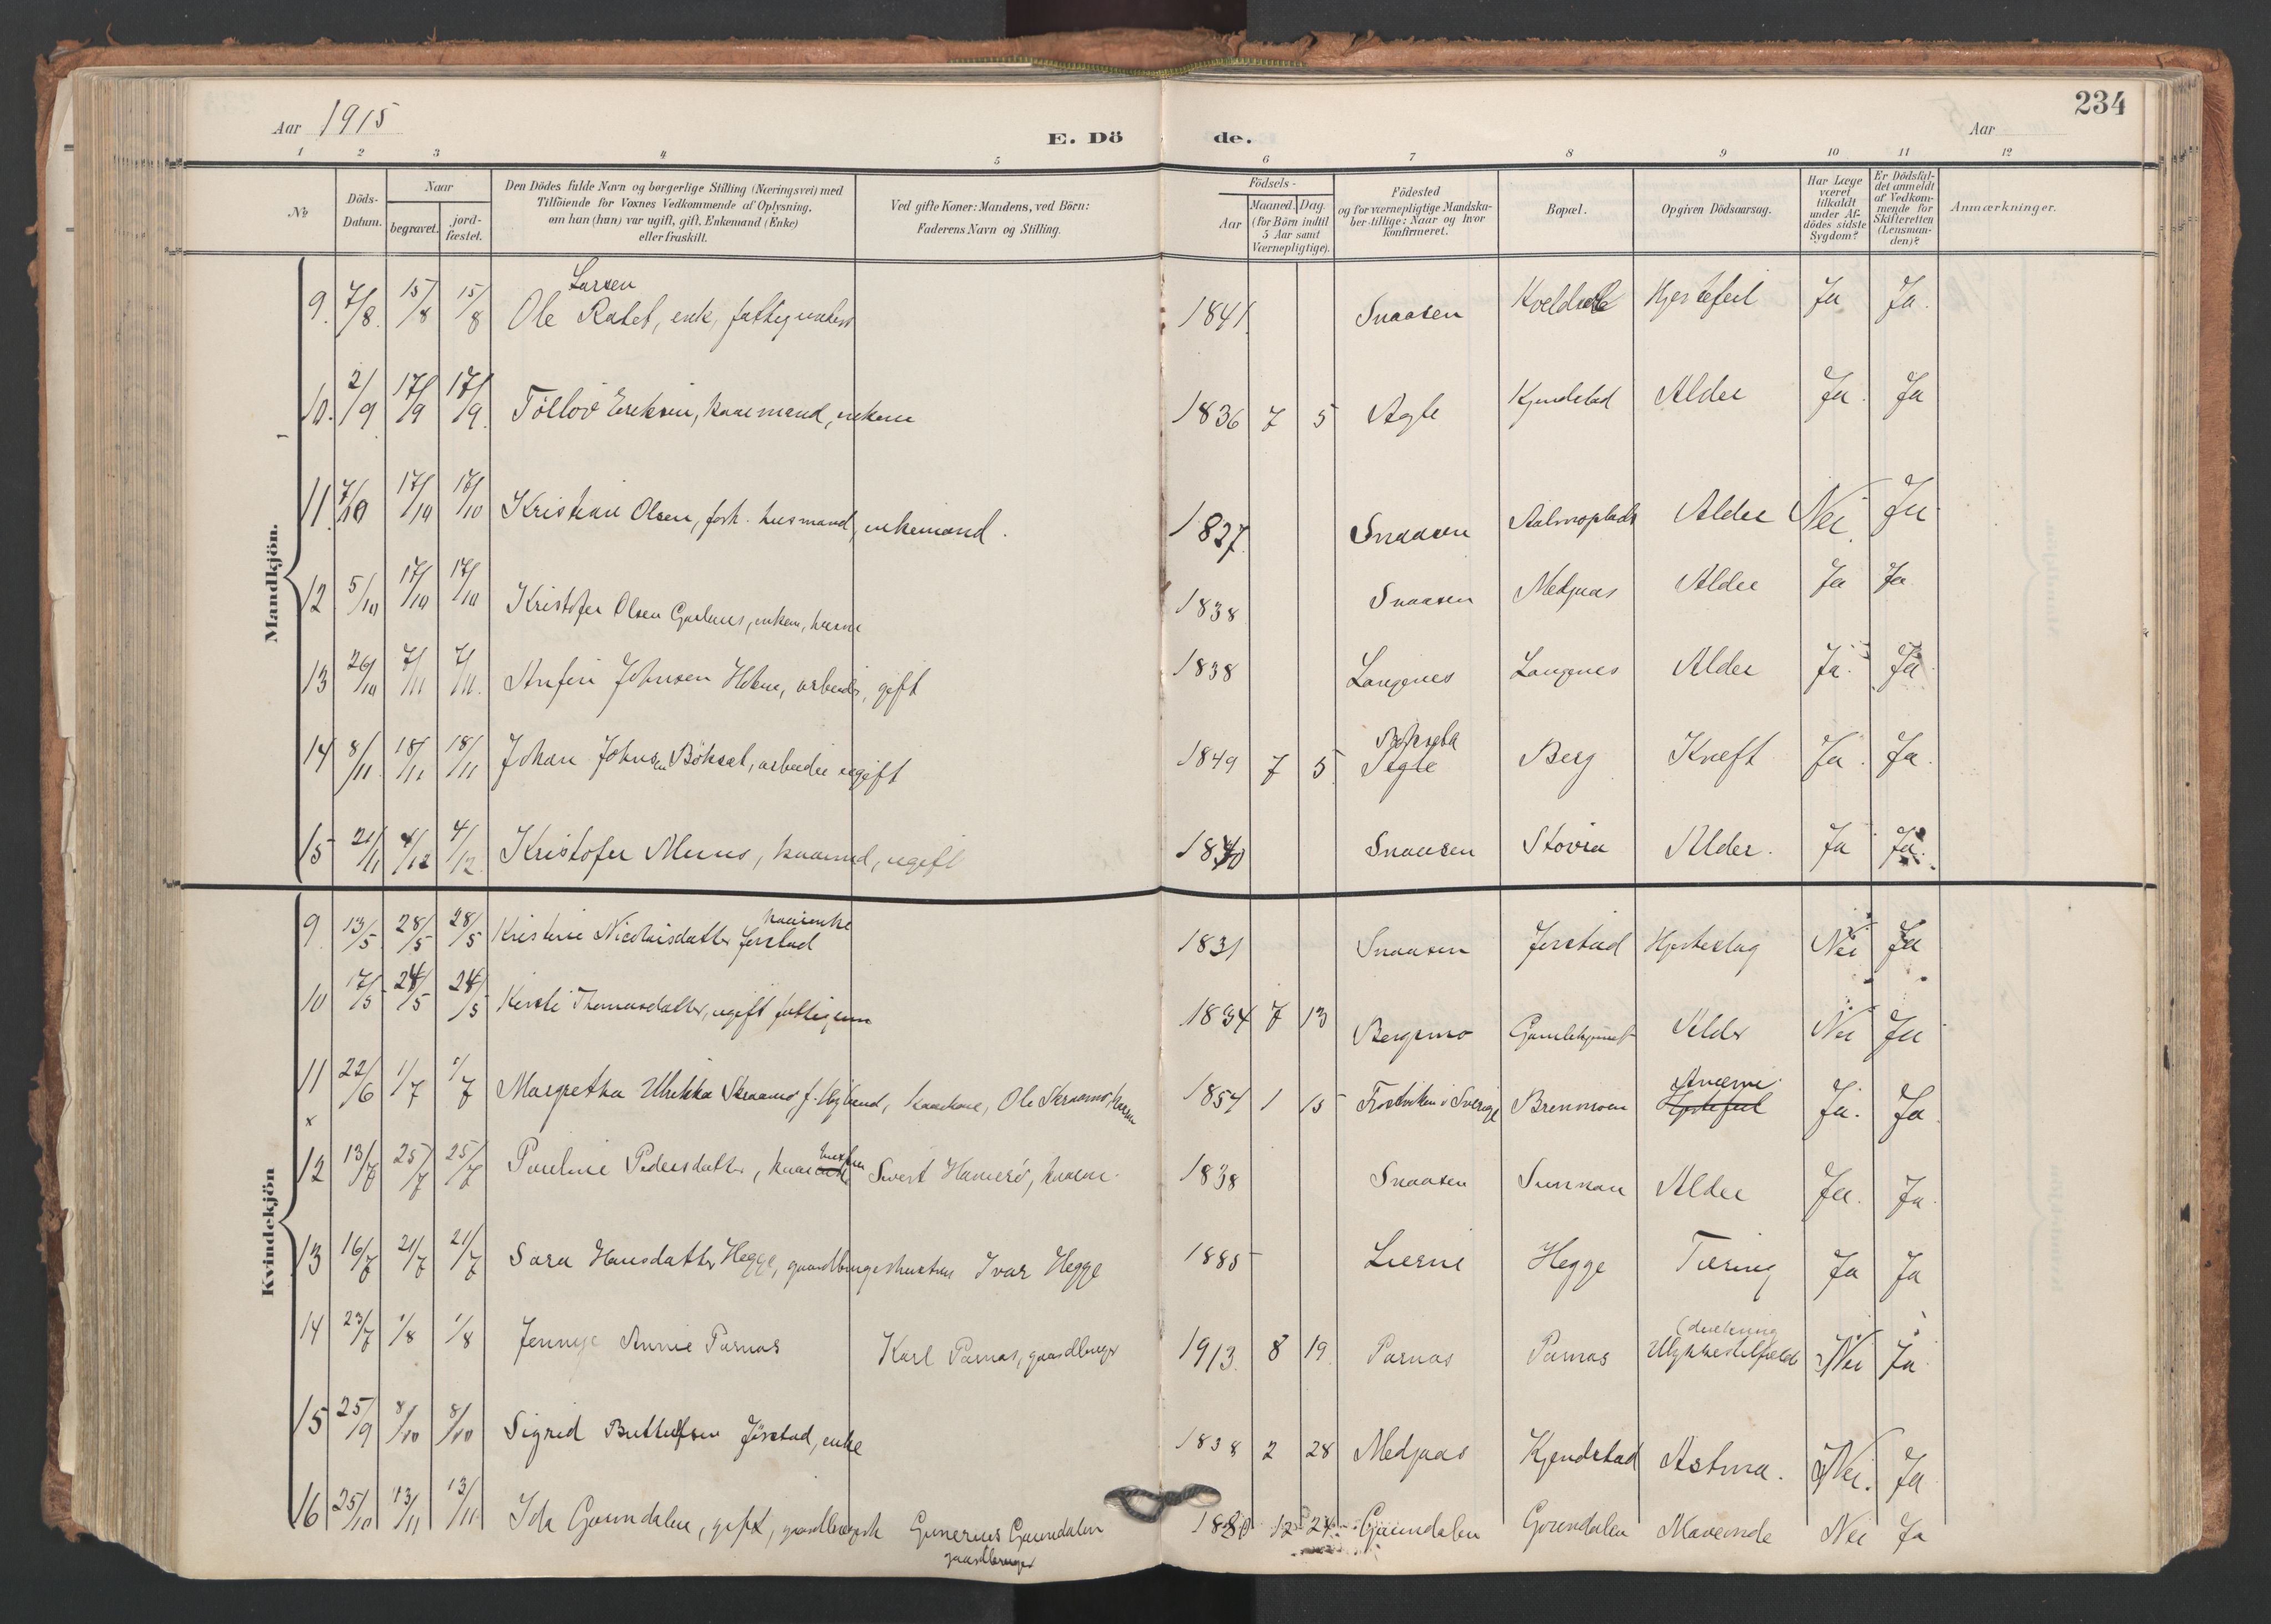 234
Aar 1915
E. Dö de.
Aar
1 2 3 4 5 6 7 8 9 10 11 12
No
Döds-Datum.
Naar
begravet.
jord-fæstet.
Den Dödes fulde Navn og borgerlige Stilling (Næringsvei) med
Tilföiende for Voxnes Vedkommende af Oplysning,
om han (hun) var ugift, gift, Enkemand (Enke)
eller fraskilt.
Ved gifte Koner: Mandens, ved Börn:
Faderens Navn og Stilling.
Födsels-
Aar
Maaned. Dag.
(for Börn indtil
5 Aar samt
Værnepligtige).
Födested
og for værnepligtige Mandska-
ber tillige: Naar og hvor
konfirmeret.
Bopæl.
Opgiven Dödsaarsag.
Har Læge
været
tilkaldt
under Af-
dödes sidste
Sygdom?
Er Dödsfal-
det anmeldt
af Vedkom-
mende for
Skifteretten
(Lensman-
den)?
Anmærkninger.
Mandkjön.
Larsen
9. 7/8. 15/8 15/8 Ole enk, 1841 Snaasen Hjertefeil Ja Ja.
10. 2/9 17/9 17/9. Töllöv Eriksen, kaarmand, enkem 1836 7 5 Agle Kjendstad Alder Ja. Ja
11. 7/10 17/10 17/10 Kristian Olsen, forh. husmand, enkemand. 1827. Snaasen Alder Nei. Ja
12 5/10 17/10 17/10 Kristofer Olsen enkem, 1838 Snaasen Medjaas Alder Ja Ja
13 26/10 7/11 7/11. Anfin Johnsen arbeider, gift 1838 Langnes Langnes Alder Ja. Ja.
14 8/11 18/11 18/11 Johan Johnsen Böksat, arbeider ugift 1849 7 5 Agle Berg Kræft Ja. Ja.
15 21/11 4/12 4/12. Kristofer ugift 1840 Snaasen Stovra Alder. Ja Ja.
Kvindekjön
kaarenke
9. 13/5 28/5 28/5 Kristine Nicolaisdatter Jorstad 1831 Snaasen Jorstad Hjerteslag Nei Ja
10 17/5 24/5 24/5 Kirsti Thomasdatter, ugift 1834 7 13 Bergsmo Alder Nei Ja
Anæmi.
11 22/6 1/7 1/7 Margretha Ulrikka Skraamo f. kaarkone, Ole Skraamo, kaarm 1854 1 15 Frostviken i Sverige Brennmoen Hjertefeil Ja. Ja
x
12 13/7 25/7 25/7 Pauline Pedersdatter, Sivert Hammerö, kaarm. 1838 Snaasen Sunnan Alder Ja. Ja.
13 16/7 21/7 21/7 Sara Hansdatter Hegge, gaardbrugershustru Ivar Hegge 1885 Lierne Hegge Tæring Ja Ja
(drukning
14 23/7 1/8 1/8 Jennye Annie Parnas Karl Parnas, gaardbruger 1913. 8 19. Parnas Parnas Ulykkestilfælde Nei Ja.
15 25/9 8/10 8/10 Sigrid Jörstad, enke 1838 2 28 Medjaas Kjendstad Astma. Nei. Ja
16 25/10 13/11 13/11 Ida Gaundalen, gift, Gunerius Gaundalen 1880 12 24 Gaundalen Gaundalen Mavonde Nei Ja
gaardbruger